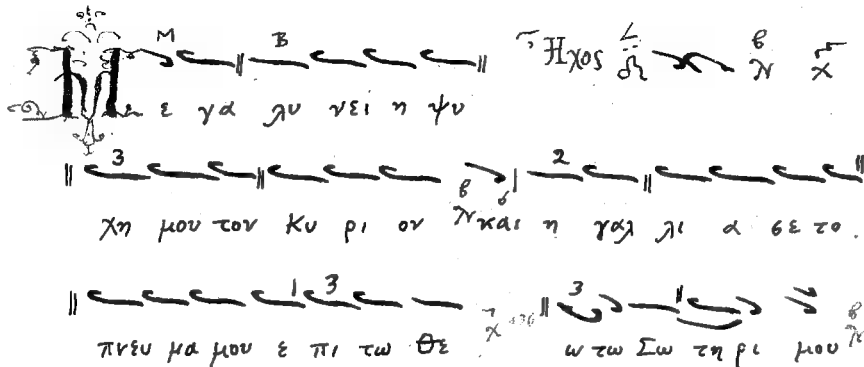 Μ Β Ἦχος
Μ ε γα λυ νει η ψυ
3 2
χη μου τον Κυ ρι ον και η γαλ λι α σε το
3 3
πνευ μα μου ε πι τω Θε ω τω Σω τη ρι μου